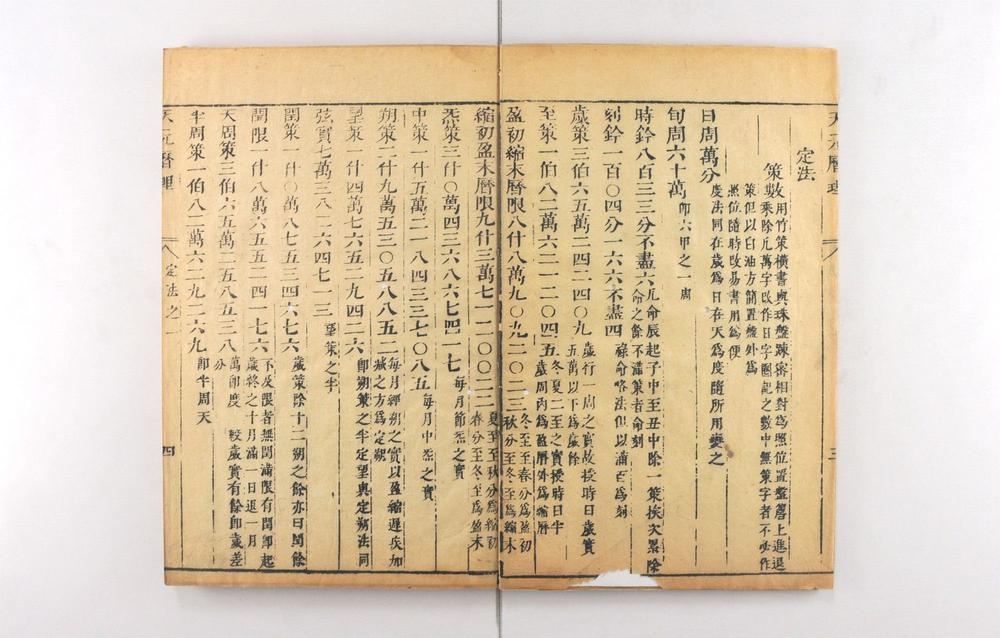 天元曆理
三
定法
策數用竹策橫書與珠盤疎密相對爲照位置盤籌上進退
乘除凡萬字改作日字圈記之數中無策字者不必作
策但以白油方簡置盤外爲
照位隨時改易書用爲便
日周萬分度法同在歲爲日在天爲度隨所用變之
旬周六十萬卽六甲之一周
時鈐八百三三分不盡六凡命辰起子中至丑中除一策挨次累除
命之餘不滿策者命刻
刻鈐一百〇四分一六六不盡四祿命略法但以滿百爲刻
歲策三伯六五萬二四二〇九歲行一周之實故授時曰歲實
五萬以下爲歲餘
至策一伯八二萬六二一二〇四五冬夏二至之實授時曰半
歲周內爲盈曆外爲縮曆
盈初縮末曆限八什八萬九〇九二〇二三冬至至春分爲盈初
秋分至冬至爲縮末
縮初盈末曆限九什三萬七一二〇〇二二夏至至秋分爲縮初
春分至冬至爲盈末
炁策三什〇萬四三六八六七四一七每月節炁之實
中策一什五萬二一八四三三七〇八五每月中炁之實
朔策二什九萬五三〇五八八五二每月經朔之實以盈縮遲疾加
減之方爲定朔
望策一什四萬七六五二九四二六卽朔策之半定望與定朔法同
弦實七萬三八二六四七一三望策之半
閏策一什〇萬八七五三四六七六歲策除十二朔之餘亦曰閏餘
閏限一什八萬六五五二四一七六不及限者無閏滿限有閏卽起
歲終之十月滿一日退一月
天周策三伯六五萬二五八七五三八萬卽度較歲實有餘卽歲差
分
半周策一伯八二萬六二九二六九卽半周天
天元曆理
定法之一
四